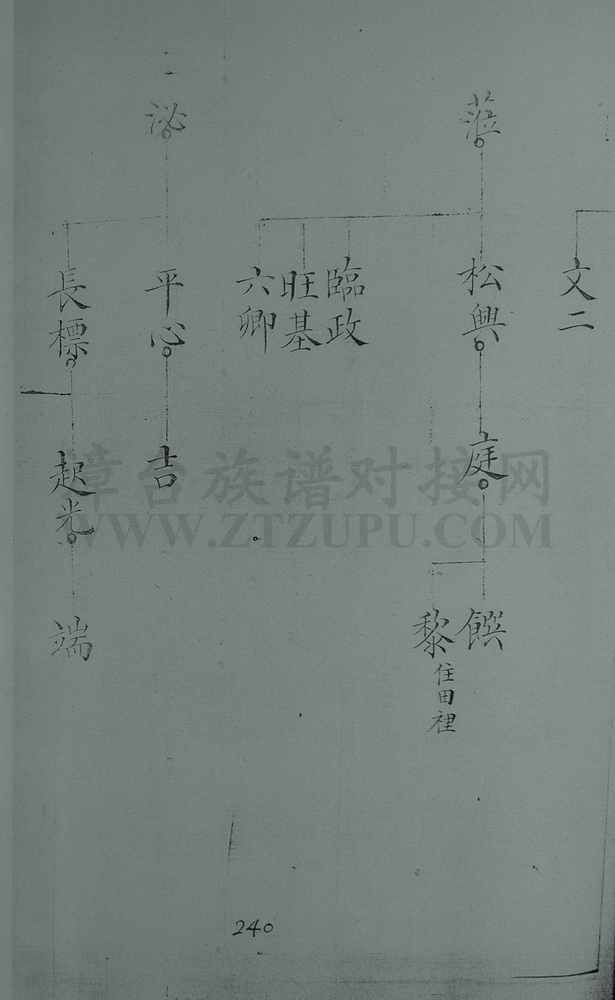 文二
蒞
松興
臨政
旺基
六卿
庭
饌
黎 住田裡
泌
平心
長標
吉
起光
端
漳台族谱对接网
WWW.ZTZUPU.COM
240